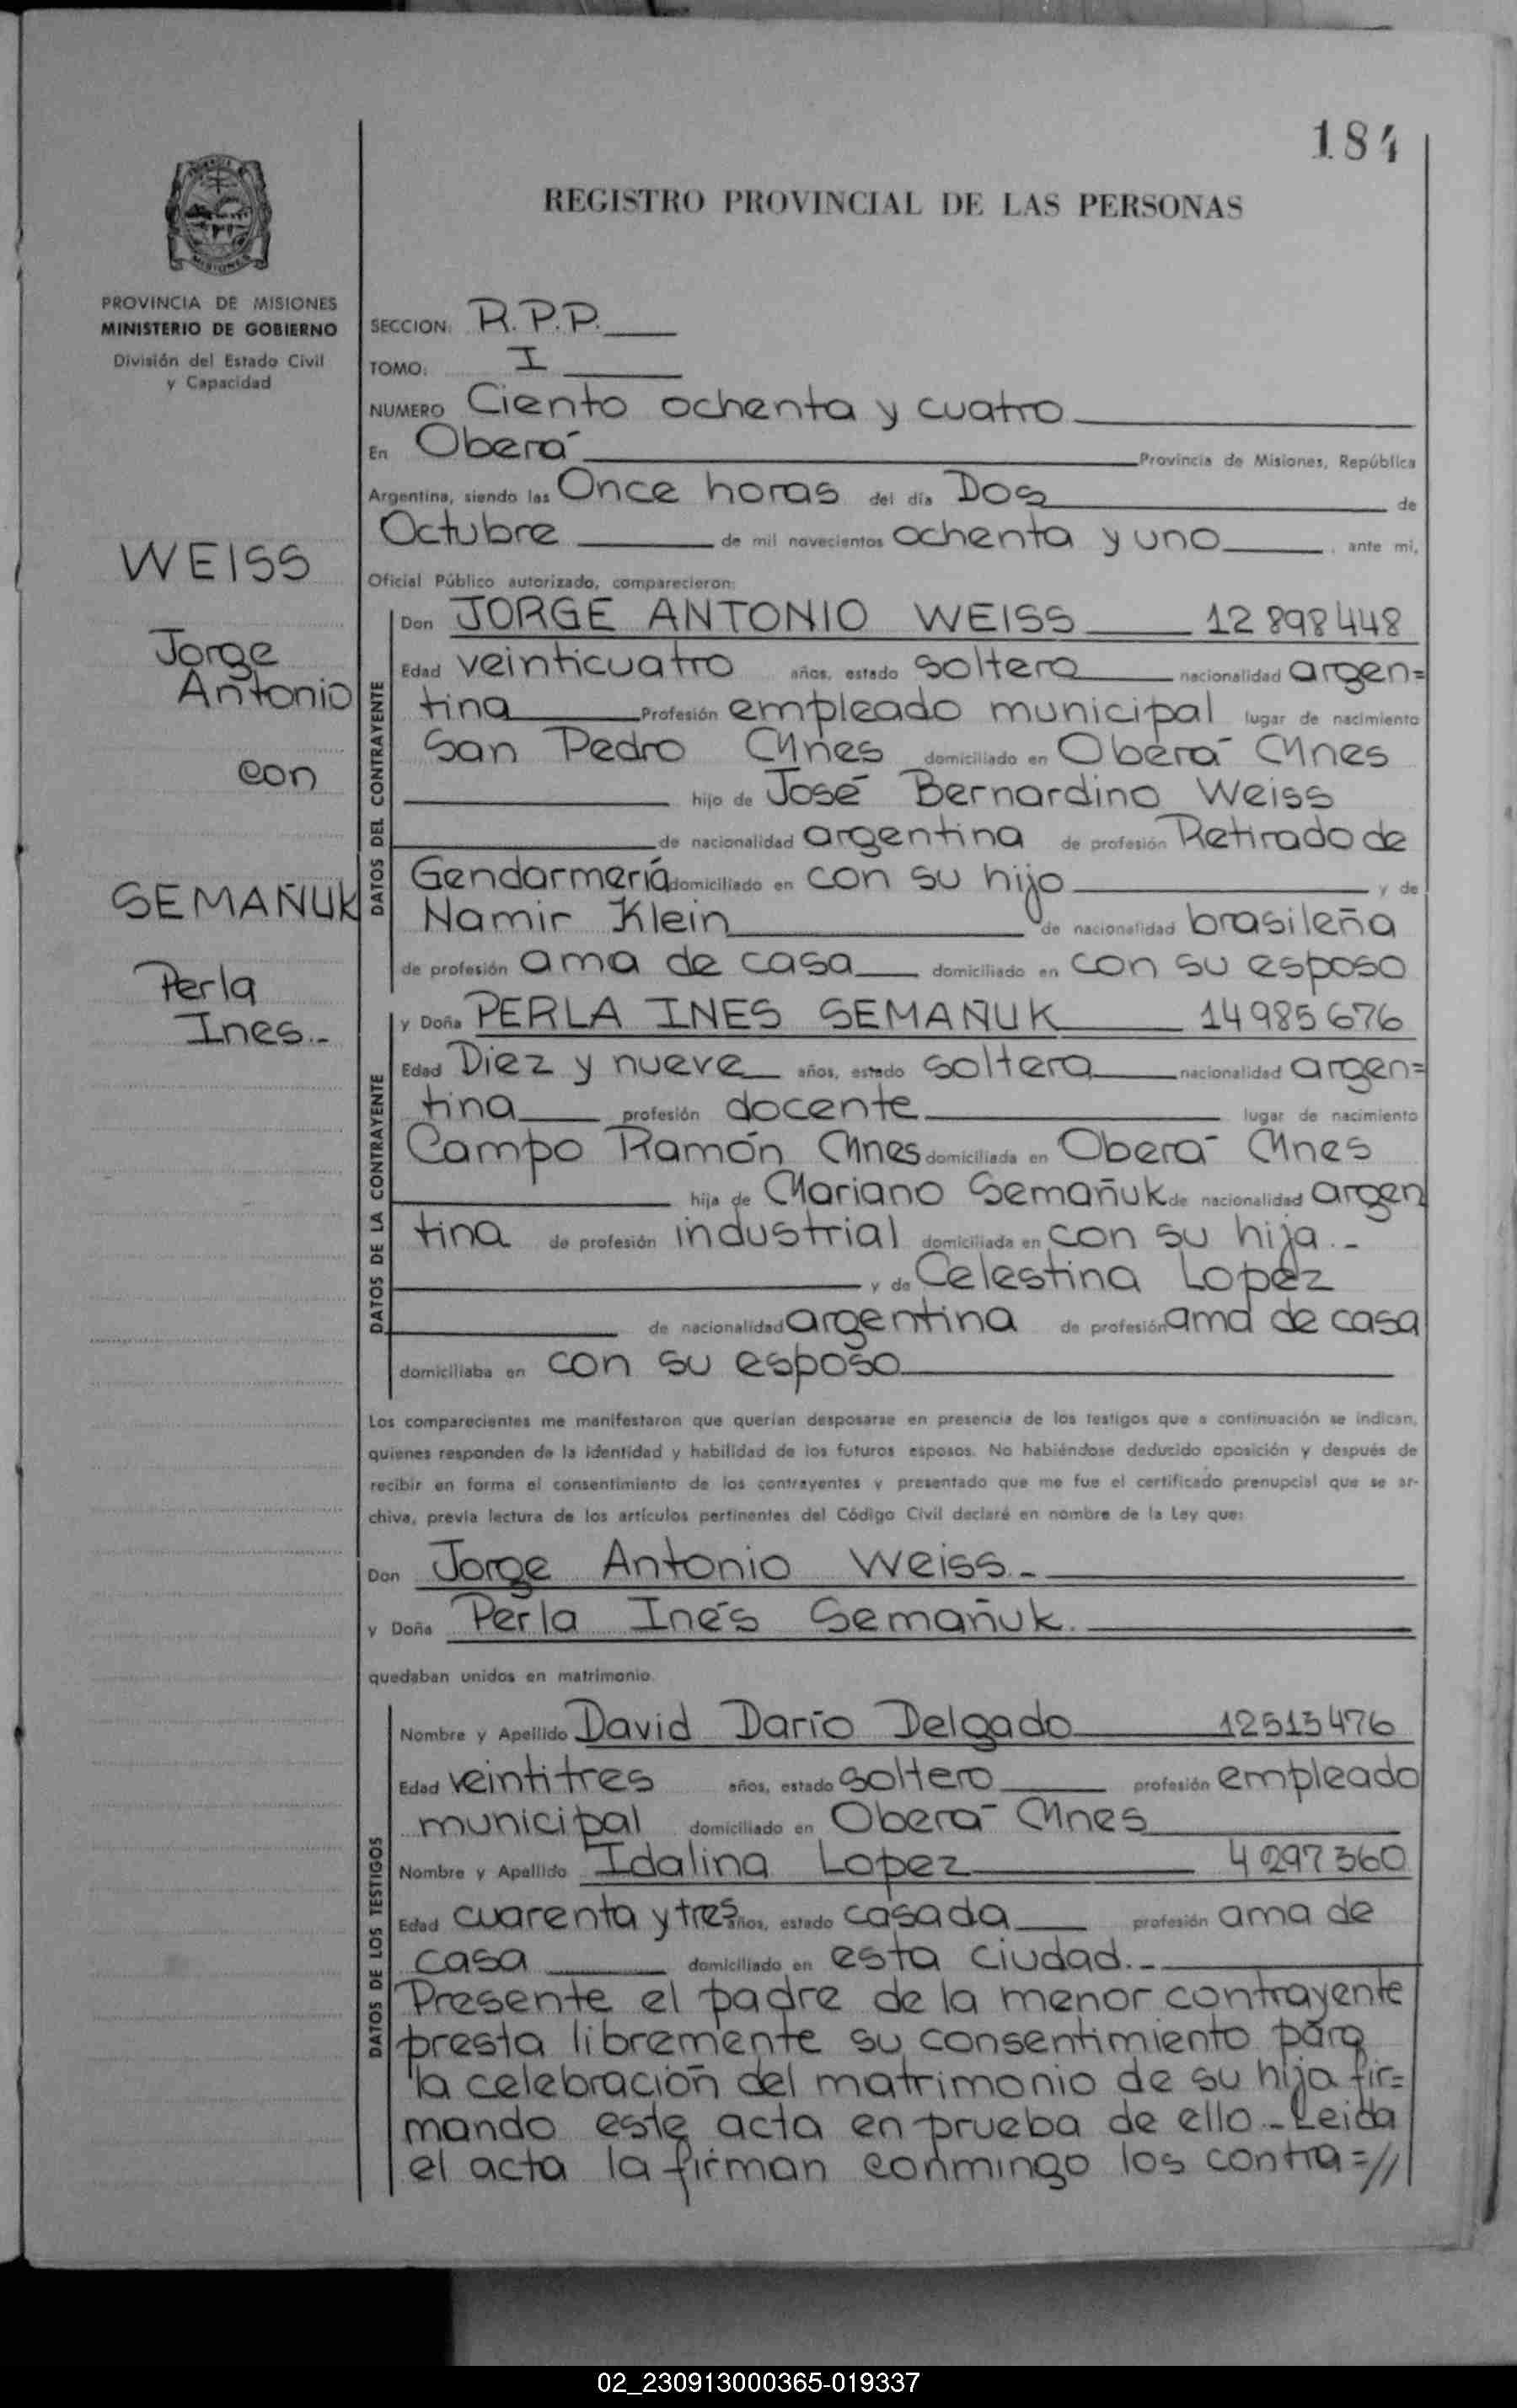 184
REGISTRO PROVINCIAL DE LAS PERSONAS
PROVINCIA DE MISIONES
MINISTERIO DE GOBIERNO
División del Estado Civil
y Capacidad
WEISS
Jorge
Antonio
con
SEMAÑUK
Perla
Ines.-
SECCION: R.P.P.
TOMO: I
NUMERO Ciento ochenta y cuatro
En Oberá Provincia de Misiones, República
Argentina, siendo las Once horas del día Dos de
Octubre de mil novecientos ochenta y uno, ante mi,
Oficial Público autorizado, comparecieron:
DATOS DEL CONTRAYENTE
Don JORGE ANTONIO WEISS 12 898 448
Edad veinticuatro años, estado soltero nacionalidad argen=
tina Profesión empleado municipal lugar de nacimiento
San Pedro Mnes domiciliado en Oberá Mnes
hijo de José Bernardino Weiss
de nacionalidad argentina de profesión Retirado de
Gendarmería domiciliado en con su hijo y de
Namir Klein de nacionalidad brasileña
de profesión ama de casa domiciliado en con su esposo
DATOS DE LA CONTRAYENTE
y Doña PERLA INES SEMAÑUK 14 985 676
Edad Diez y nueve años, estado soltera nacionalidad argen=
tina profesión docente lugar de nacimiento
Campo Ramón Mnes domiciliada en Oberá Mnes
hija de Mariano Semañuk de nacionalidad argen
tina de profesión industrial domiciliada en con su hija.-
y de Celestina Lopez
de nacionalidad argentina de profesión ama de casa
domiciliaba en con su esposo
Los comparecientes me manifestaron que querían desposarse en presencia de los testigos que a continuación se indican,
quienes responden de la identidad y habilidad de los futuros esposos. No habiéndose deducido oposición y después de
recibir en forma el consentimiento de los contrayentes y presentado que me fue el certificado prenupcial que se ar-
chiva, previa lectura de los artículos pertinentes del Código Civil declaré en nombre de la Ley que:
Don Jorge Antonio Weiss.-
y Doña Perla Inés Semañuk.
quedaban unidos en matrimonio.
DATOS DE LOS TESTIGOS
Nombre y Apellido David Darío Delgado 12513476
Edad veintitres años, estado soltero profesión empleado
municipal domiciliado en Oberá Mnes
Nombre y Apellido Idalina Lopez 4 297 360
Edad cuarenta y tres años, estado casada profesión ama de
casa domiciliado en esta ciudad.-
Presente el padre de la menor contrayente
presta libremente su consentimiento para
la celebración del matrimonio de su hija fir=
mando este acta en prueba de ello.- Leida
el acta la firman conmingo los contra=//
02_230913000365-019337